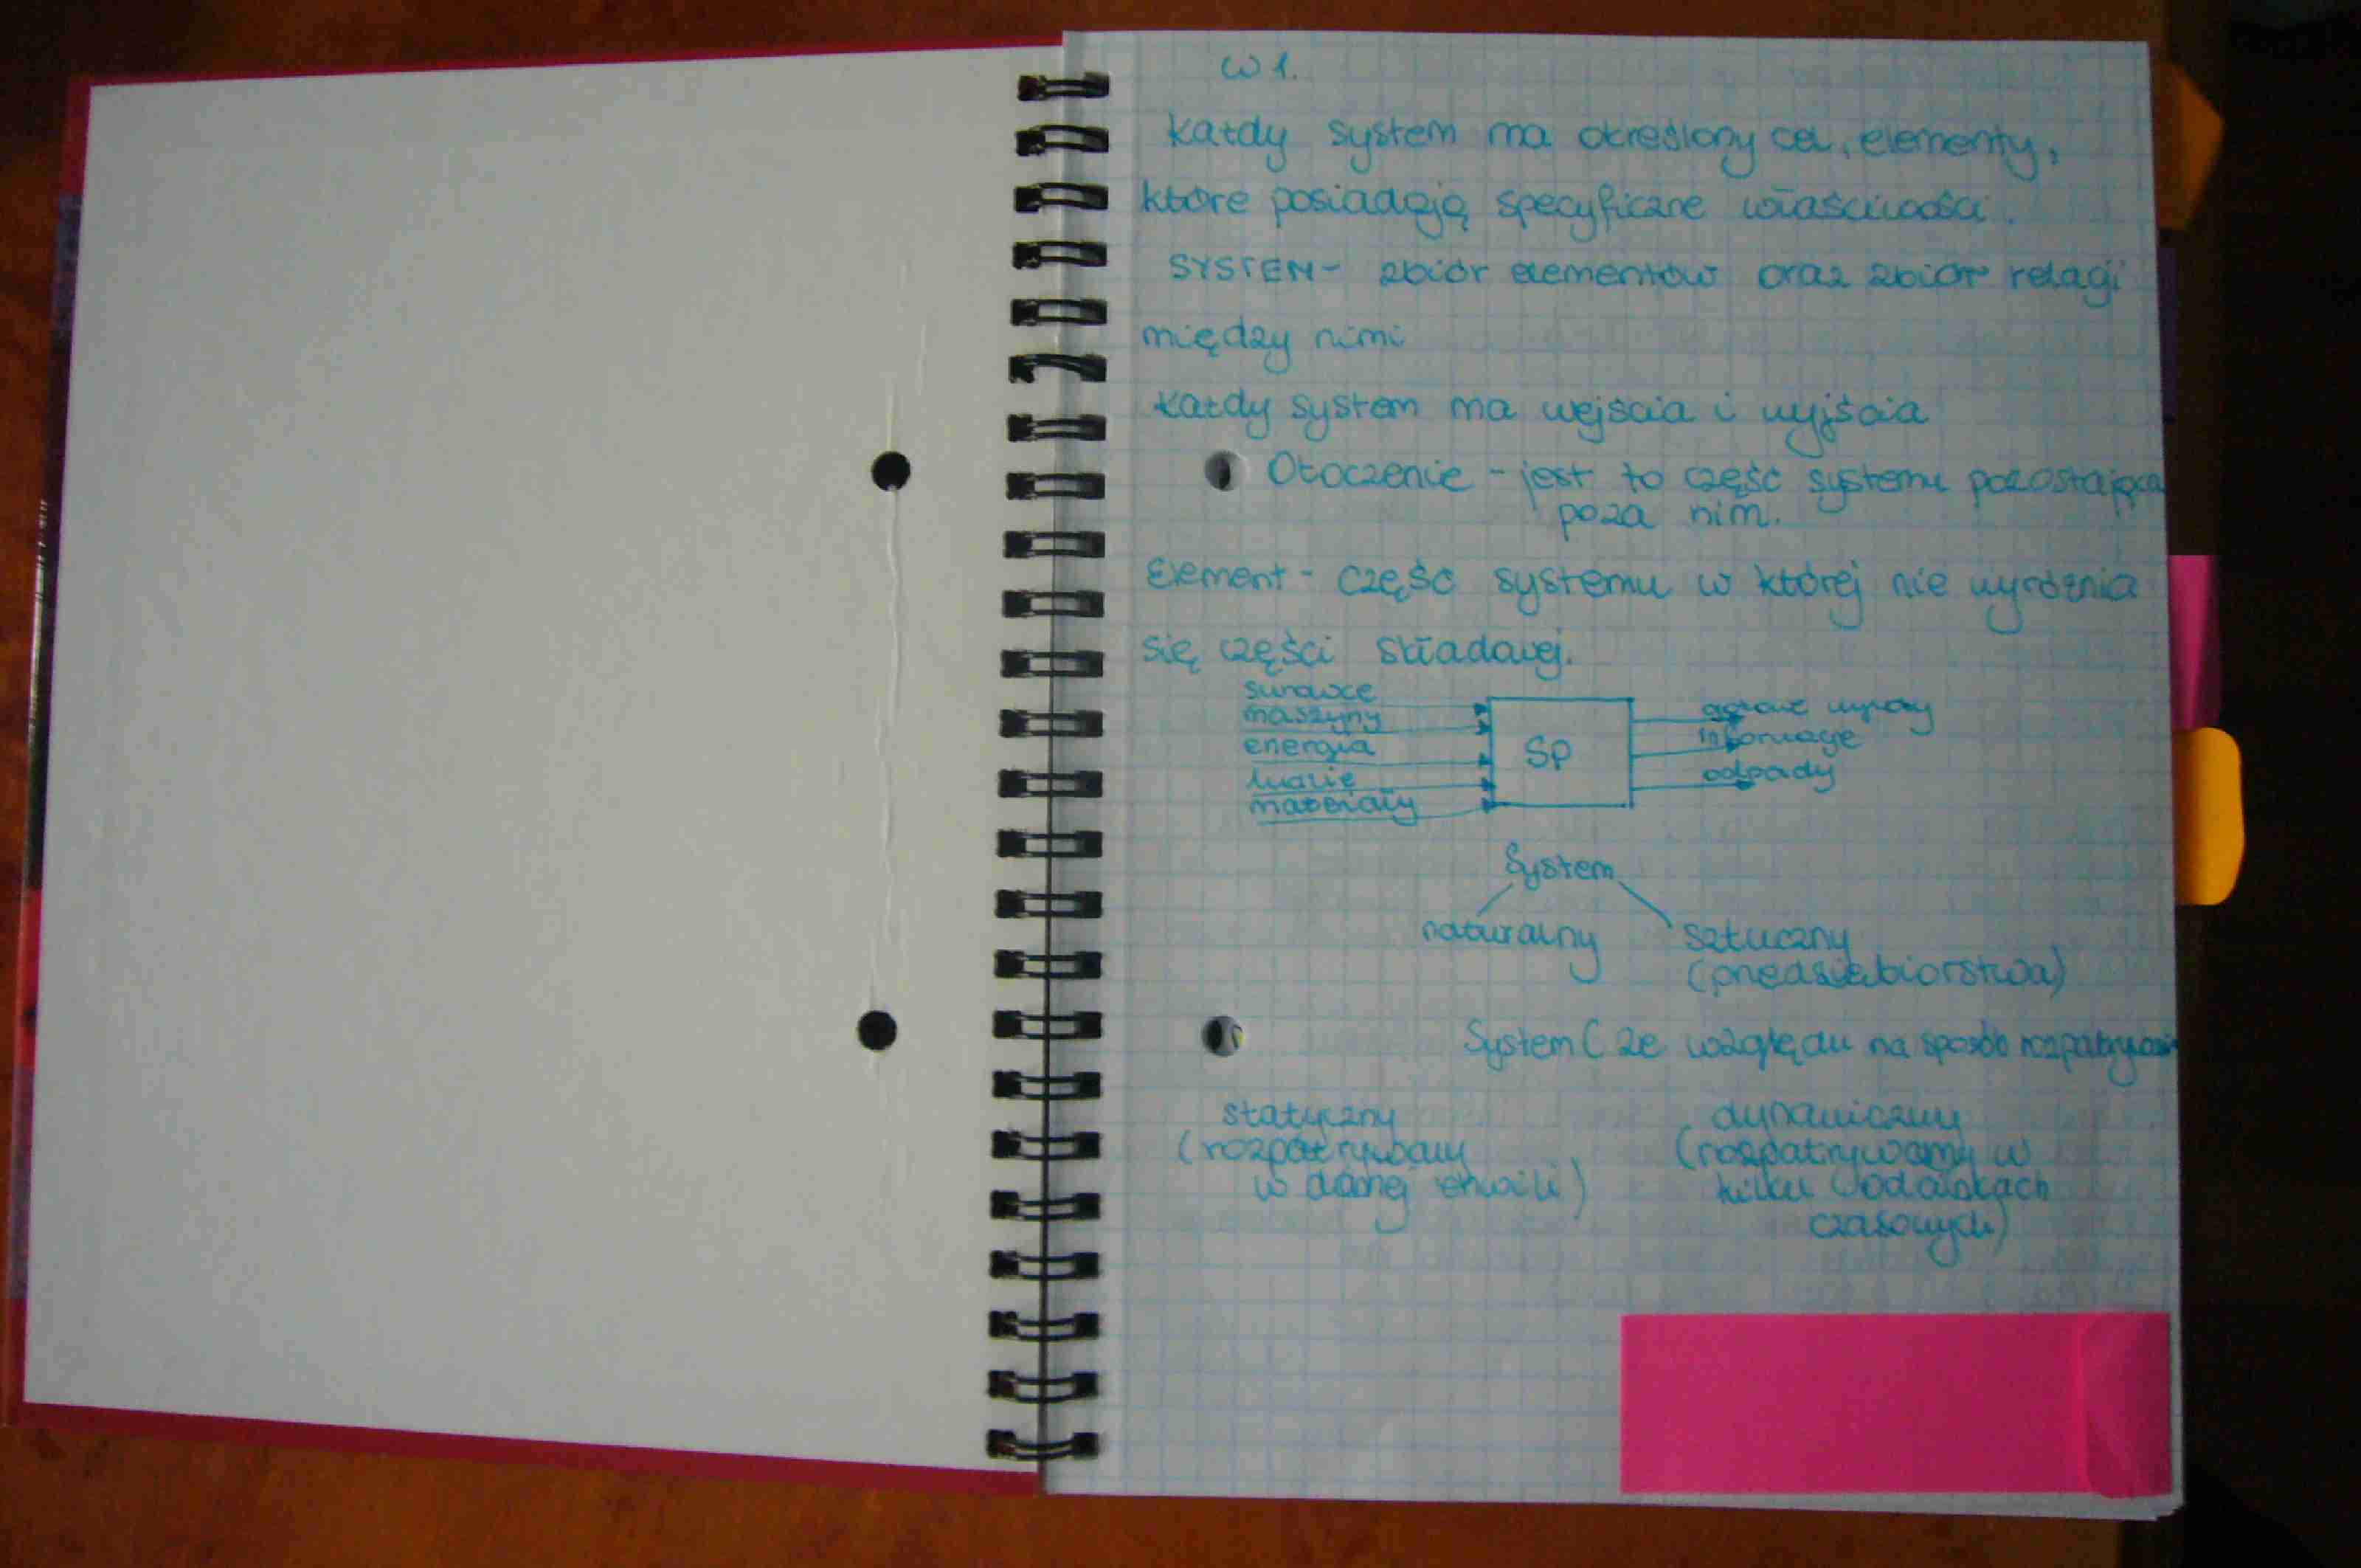 W 1.
Każdy system ma określony cel, elementy,
które posiadają specyficzne właściwości.
SYSTEM - zbiór elementów oraz zbiór relacji
między nimi
Każdy system ma wejścia i wyjścia
Otoczenie - jest to część systemu pozostająca
poza nim.
Element - część systemu w której nie wyróżnia
się części składowej.
surowce
maszyny
energia
ludzie
materiały
SP
gotowe wyroby
informacje
odpady
System
naturalny
sztuczny
(przedsiębiorstwa)
System (ze względu na sposób rozpatrywania
statyczny
(rozpatrywany
w danej chwili)
dynamiczny
(rozpatrywany w
kilku odcinkach
czasowych)